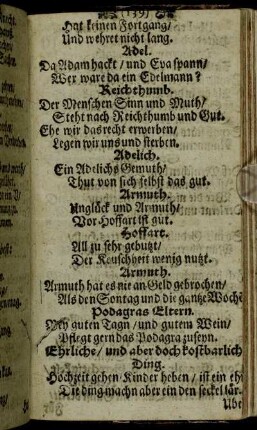 (139)
Hat keinen Fortgang/
Und wehret nicht lang.
Adel.
Da Adam hackt / und Eva spann/
Wer ware da ein Edelmann?
Reichthumb.
Der Menschen Sinn und Muth/
Steht nach Reichthumb und Gut.
Ehe wir das recht erwerben/
Legen wir uns und sterben.
Adelich.
Ein Adelichs Gemuth/
Thut von sich selbst das gut.
Armuth.
Unglück und Armuth/
Vor Hoffart ist gut.
Hoffart.
All zu sehr gebutzt/
Der Keuschheit wenig nutzt.
Armuth.
Armuth hat es nie an Geld gebrochen/
Als den Sontag und die gantze Woche
Podagras Eltern.
Bey guten Tagn / und gutem Wein/
Pflegt gern das Podagra zu seyn.
Ehrliche / und aber doch kostbarlich
Ding.
Hochzeit gehen Kinder heben / ist ein eh
Die ding machn aber ein den seckel lär.
Ube